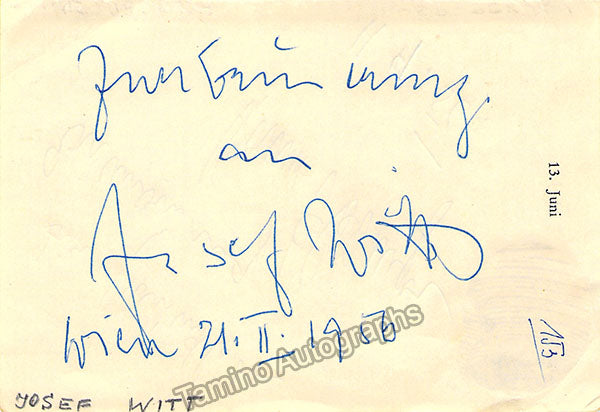 Zur Erinnerung
an
Josef Witt
Wien 21. II. 1956
13. Juni
JOSEF WITT
Tamino Autographs